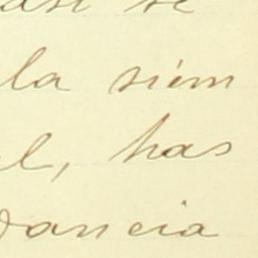 se
la siem
l, has
dancia